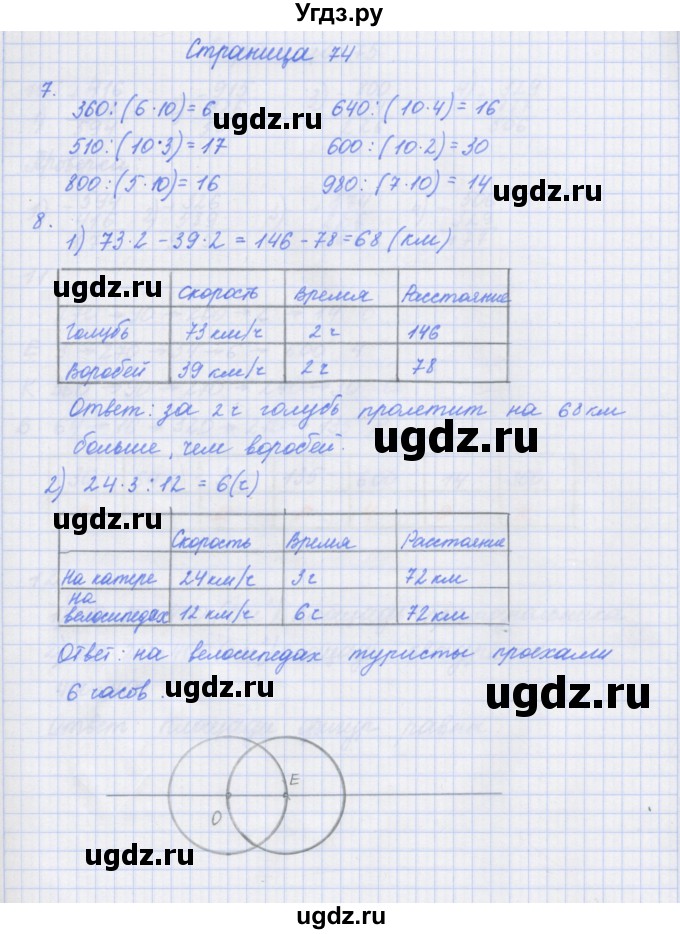 Угдз.ру
Страница 74
7.
360:(6·10)=6 640:(10·4)=16
ugdz.ru
510:(10·3)=17 600:(10·2)=30
ugdz.ru
800:(5·10)=16 980:(7·10)=14
ugdz.ru
8.
1) 73·2-39·2=146-78=68(км)
ugdz.ru
Скорость Время Расстояние
Голубь 73 км/ч 2 ч 146
Воробей 39 км/ч 2 ч 78
Ответ: за 2 ч голубь пролетит на 68 км
больше, чем воробей.
ugdz.ru
2) 24·3:12=6(ч)
ugdz.ru
Скорость Время Расстояние
ugdz.ru
На катере 24 км/ч 3 ч 72 км
на велосипедах 12 км/ч 6 ч 72 км
Ответ: на велосипедах туристы проехали
6 часов.
ugdz.ru
ugdz.ru
O E
ugdz.ru
ugdz.ru
ugdz.ru